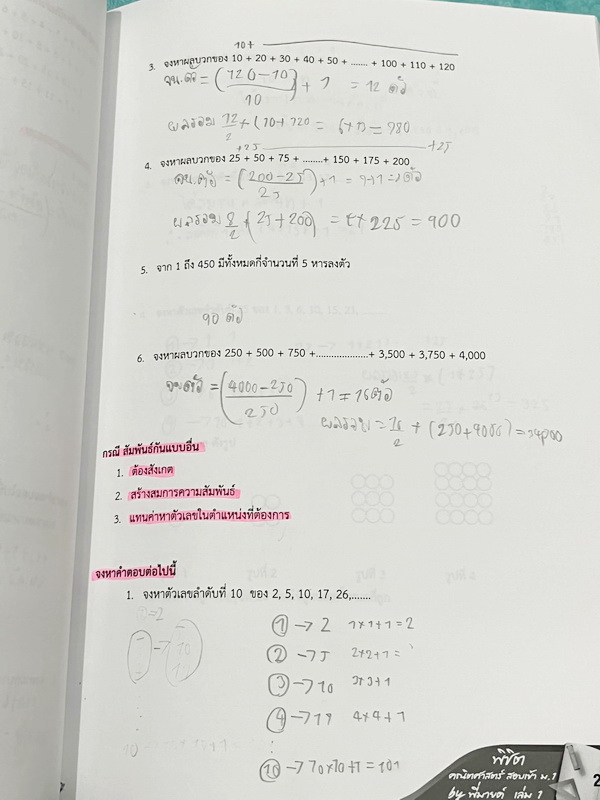 10+
3. จงหาผลบวกของ 10 + 20 + 30 + 40 + 50 + ....... + 100 + 110 + 120
จน.ตัว = (120-10/10) + 1 = 12 ตัว
ผลรวม 12/2 + (10+120 = 6×1 = 780
+25 +25
4. จงหาผลบวกของ 25 + 50 + 75 + ........+ 150 + 175 + 200
จน.ตัว = (200-25/25) +1 = 7+1 = 8 ตัว
ผลรวม 8/2 + (25+200) = 4×225 = 900
5. จาก 1 ถึง 450 มีทั้งหมดกี่จำนวนที่ 5 หารลงตัว
90 ตัว
6. จงหาผลบวกของ 250 + 500 + 750 +....................+ 3,500 + 3,750 + 4,000
จน.ตัว = (4000-250/250) +1 = 16 ตัว
ผลรวม = 16/2 + (250+4000) = 34000
กรณี สัมพันธ์กันแบบอื่น
1. ต้องสังเกต
2. สร้างสมการความสัมพันธ์
3. แทนค่าหาตัวเลขในตำแหน่งที่ต้องการ
จงหาคำตอบต่อไปนี้
1. จงหาตัวเลขลำดับที่ 10 ของ 2, 5, 10, 17, 26,.......
① → 2 1×1+1 = 2
② → 5 2×2+1 =
③ → 10 3×3+1
④ → 17 4×4+1
⑩ → 10×10+1 = 101
พิชิต
คณิตศาสตร์ สอบเข้า ม.1
by พี่มายด์ เล่ม 1
2